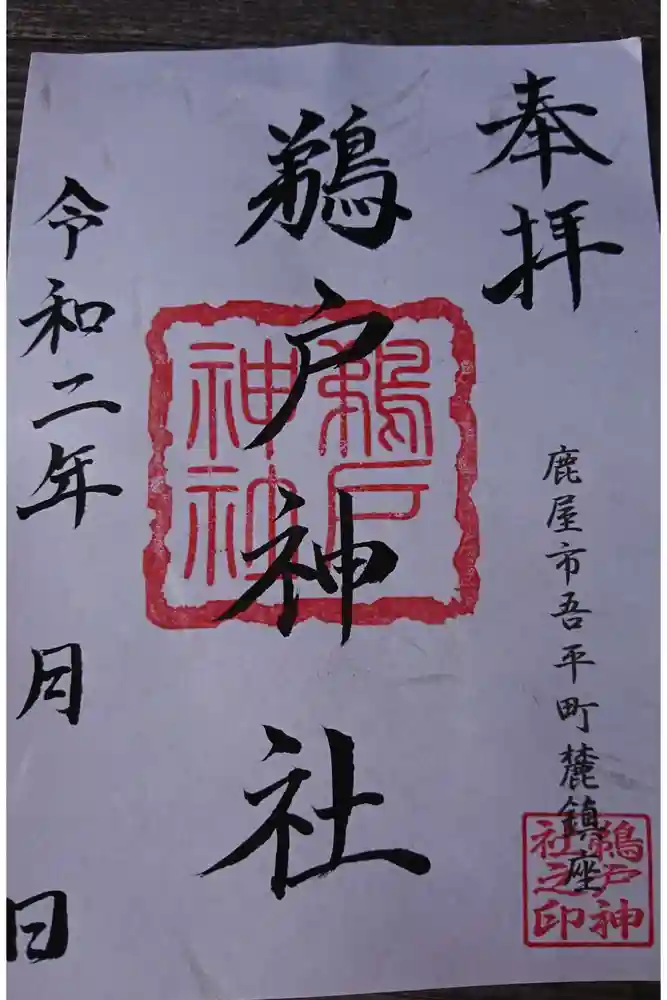 奉拝
鹿屋市吾平町麓鎮座
鵜戸神社之印
鵜戸神社
鵜戸神社
令和二年 月 日